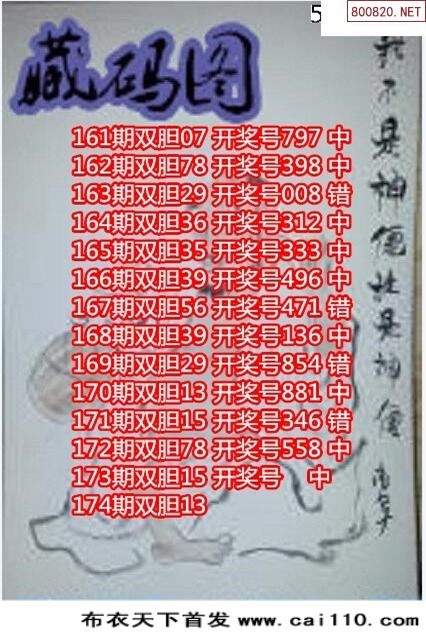 5
800820.NET
藏码图
161期双胆07 开奖号797 中
162期双胆78 开奖号398 中
163期双胆29 开奖号008 错
164期双胆36 开奖号312 中
165期双胆35 开奖号333 中
166期双胆39 开奖号496 中
167期双胆56 开奖号471 错
168期双胆39 开奖号136 中
169期双胆29 开奖号854 错
170期双胆13 开奖号881 中
171期双胆15 开奖号346 错
172期双胆78 开奖号558 中
173期双胆15 开奖号 中
174期双胆13
不是神仙 是神仙
布衣天下首发 www.cai110.com